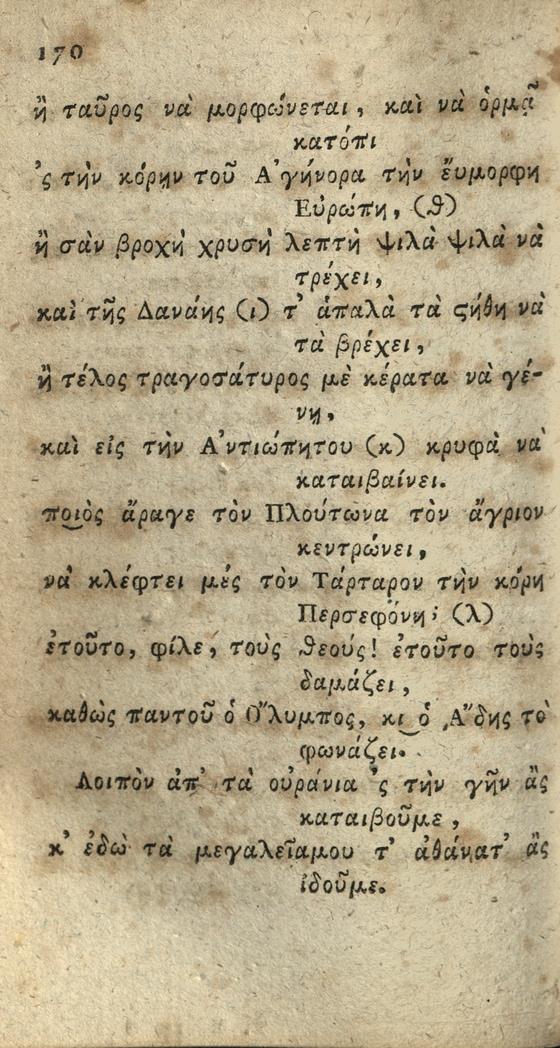 170
ἢ ταῦρος νὰ μορφώνεται, καὶ νὰ ὁρμᾷ
κατόπι
'ς τὴν κόρην τοῦ Ἀγήνορα τὴν ἔυμορφη
Εὐρώπη, (ϑ)
ἢ σὰν βροχὴ χρυσὴ λεπτὴ ψιλὰ ψιλὰ νὰ
τρέχει,
καὶ τῆς Δανάης (ι) τ' ἁπαλὰ τὰ ϛήθη νὰ
τὰ βρέχει,
ἢ τέλος τραγοσάτυρος μὲ κέρατα νὰ γέ-
νῃ,
καὶ εἰς τὴν Ἀντιώπητου (κ) κρυφὰ νὰ
καταιβαίνει.
ποιὸς ἄραγε τὸν Πλούτωνα τὸν ἄγριον
κεντρώνει,
νὰ κλέφτει μὲς τὸν Τάρταρον τὴν κόρη
Περσεφόνη; (λ)
ἐτοῦτο, φίλε, τοὺς ϑεούς! ἐτοῦτο τοὺς
δαμάζει,
καθὼς παντοῦ ὁ Ὄλυμπος, κι ὁ Ἅδης τὸ
φωνάζει.
Λοιπὸν ἀπ' τὰ οὐράνια 'ς τὴν γῆν ἂς
καταιβοῦμε,
κ' ἐδὼ τὰ μεγαλεῖαμου τ' ἀθάνατ' ἂς
ἰδοῦμε.